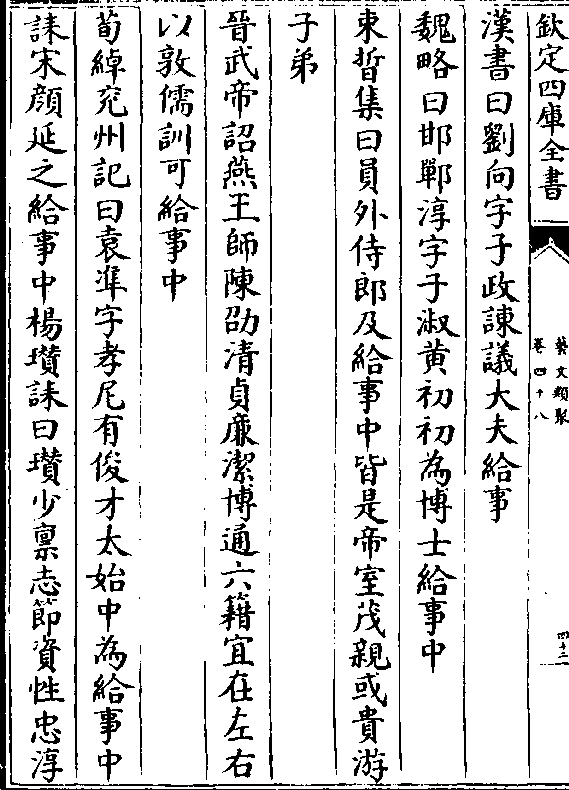 欽定四庫全書
藝文類聚
卷四十八
四十二
漢書曰劉向字子政諫議大夫給事
魏略曰邯鄲淳字子淑黄初初為博士給事中
束晳集曰員外侍郎及給事中皆是帝室茂親或貴游
子弟
晉武帝詔燕王師陳劭清貞廉潔博通六籍宜在左右
以敦儒訓可給事中
荀綽兖州記曰袁準字孝尼有俊才太始中為給事中
誄宋顔延之給事中楊瓚誄曰瓚少禀志節資性忠淳